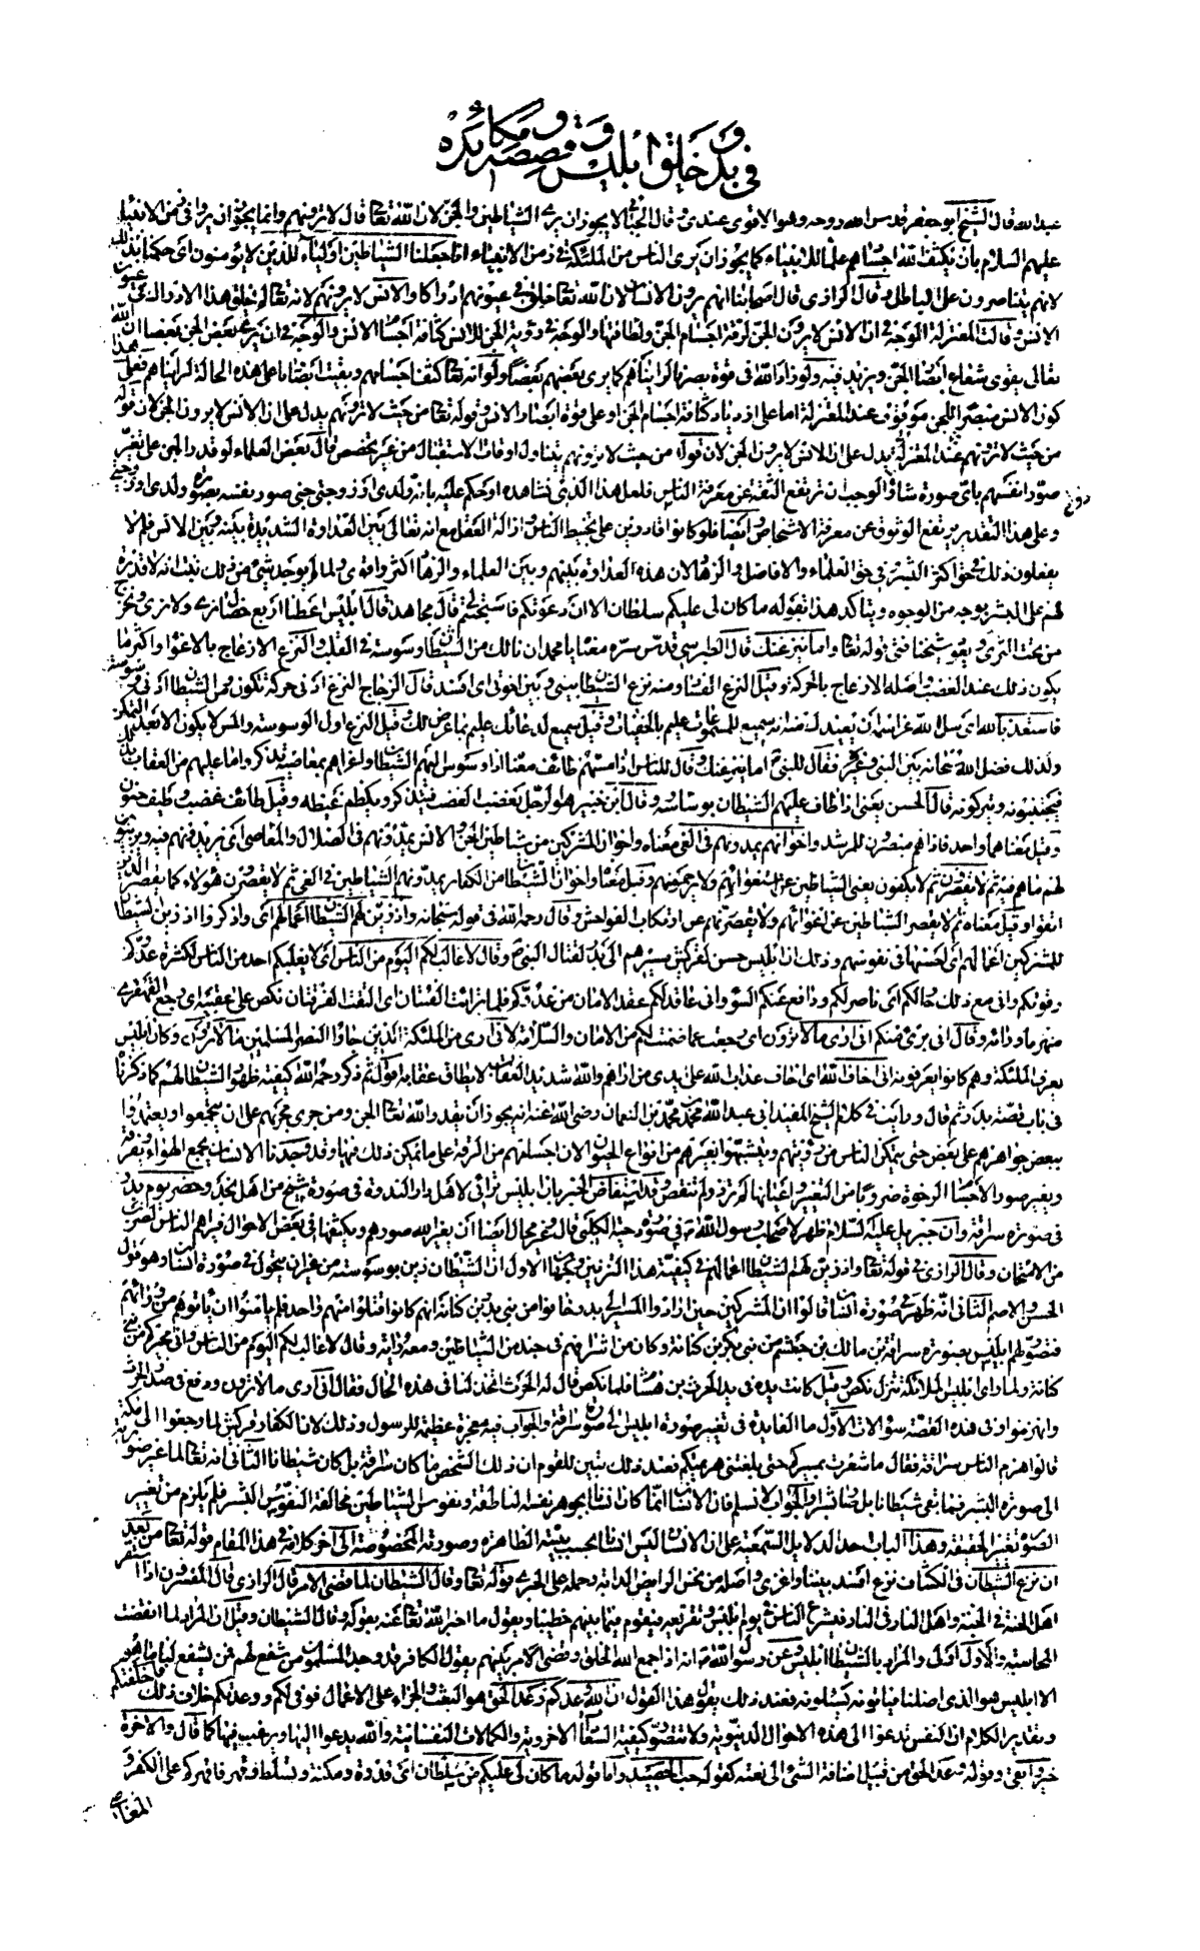 في بدو خلق ابليس وقصصه ومكائده
عبد الله قال الشيخ ابو جعفر قدس الله روحه وهو الاقوى عندي وقال الجبائي لا يجوز ان يرى الشياطين والجن لان الله تعالى قال لا ترونهم وانما يجوز ان يروا في زمن الانبياء
عليهم السلام بان يكثف الله اجسامهم علما للانبياء كما يجوز ان يرى الناس الملئكة في زمن الانبياء انا جعلنا الشياطين اولياء للذين لا يؤمنون اى حكمنا بذلك
لانهم يتناصرون على الباطل وقال الرازى قال اصحابنا انهم يرون الانسان لان الله تعالى خلق في عيونهم ادراكا والانس لا يرونهم لانه تعالى لم يخلق هذا الادراك في عيون
الانس وقالت المعتزلة الوجه في ان الانس لا يرون الجن لرقة اجسام الجن ولطافتها والوجه في رؤية الجن للانس كثافة اجسام الانس والوجه في ان يرى بعض الجن بعضا ان الله
تعالى يقوى شعاع ابصار الجن ويزيد فيه ولو زاد الله في قوة بصرنا لرايناهم كما يرى بعضهم بعضا ولو انه تعالى كثف اجسامهم وبقيت ابصارنا على هذه الحالة لرايناهم فعلى هذا
كون الانس مبصرا للجن موقوف عند المعتزلة اما على ازدياد كثافة اجسام الجن او على قوة ابصار الانس وقوله تعالى من حيث لا ترونهم يدل على ان الانس لا يرون الجن لان قوله
من حيث لا ترونهم عند المعتزلة يدل على ان الانس لا يرون الجن لان قوله من حيث لا ترونهم يتناول اوقات الاستقبال من غير تخصيص قال بعض العلماء لو قدر الجن على تغيير
صور انفسهم باى صورة شاؤا لوجب ان ترتفع الثقة عن معرفة الناس فلعل هذا الذى نشاهده او حكم عليه بانه ولدى او زوجتى جنى صور نفسه بصورة ولدى او زوجتى
وعلى هذا التقدير يرتفع الوثوق عن معرفة الاشخاص وايضا فلو كانوا قادرين على تخبيط الناس وازالة العقل مع انه تعالى بين العداوة الشديدة بينه وبين الانس فلم لا
يفعلون ذلك في حق اكثر البشر وفي حق العلماء والافاضل والزهاد لان هذه العداوة بينهم وبين العلماء والزهاد اكثر واقوى ولما لم يوجد شئ من ذلك ثبت انه لا قدرة
لهم على البشر بوجه من الوجوه ويتاكد هذا بقوله ما كان لى عليكم سلطان الا ان دعوتكم فاستجبتم قال مجاهد قال ابليس اعطنا اربع خصال نرى ولا نرى ونخرج
من تحت الثرى ويعود شيخنا فتى قوله تعالى واما ينزغنك قال الطبرسي قدس سره معناه يا محمد ان نالك من الشيطان وسوسة في القلب والنزغ الازعاج بالاغواء واكثر ما
يكون ذلك عند الغضب واصله الازعاج بالحركة وقيل النزغ الفساد ومنه نزغ الشيطان بيني وبين اخوتى اى افسد قال الزجاج النزغ ادنى حركة تكون ومن الشيطان ادنى وسوسة
فاستعذ بالله اى سل الله عز اسمه ان يعيذك منه انه سميع للمسموعات عليم بالخفيات وقيل سميع لدعائك عليم بما عرض لك وقيل النزغ اول الوسوسة والمس لا يكون الا بعد التمكن
ولذلك فصل الله سبحانه بين النبي وغيره فقال للنبي ص اما ينزغنك وقال للناس اذا مسهم طائف معناه اذا وسوس اليهم الشيطان واغراهم بمعاصيه تذكروا ما عليهم من العقاب بذلك
فيجتنبونه ويتركونه قال الحسن يعني اذا طاف عليهم الشيطان بوساوسه وقال ابن جبير هو الرجل يغضب الغضب فيتذكر ويكظم غيظه وقيل طائف غضب وطيف جنون
وقيل معناهما واحد فاذا هم مبصرون للرشد واخوانهم يمدونهم في الغى معناه واخوان المشركين من شياطين الجن والانس يمدونهم في الضلال والمعاصى اى يزيدونهم فيه ويزينون
لهم ما هم فيه ثم لا يقصرون ثم لا يكفون يعنى الشياطين عن استغوائهم ولا يرحمونهم وقيل معناه واخوان الشياطين من الكفار يمدونهم الشياطين في الغى ثم لا يقصرون هؤلاء كما يقصر الذين
اتقوا وقيل معناه ثم لا يقصر الشياطين عن اغوائهم ولا يقصرونهم عن ارتكاب الفواحش وقال رحمه الله في قوله سبحانه واذ زين لهم الشيطان اعمالهم اى واذكروا اذ زين الشيطان
للمشركين اعمالهم اى احسنها في نفوسهم وذلك ان ابليس حسن لقريش مسيرهم الى بدر لقتال النبي ص وقال لا غالب لكم اليوم من الناس اى لا يغلبكم احد من الناس لكثرة عددكم
وقوتكم وانى مع ذلك جار لكم اى ناصر لكم ودافع عنكم السوء وانى عاقد لكم عقد الامان من عدوكم فلما تراءت الفئتان اى التقت الفرقتان نكص على عقبيه اى رجع القهقرى
منهزما وراءه وقال انى برئ منكم انى ارى ما لا ترون اى رجعت عما ضمنت لكم من الامان والسلامة لانى ارى من الملئكة الذين جاؤا لنصر المسلمين ما لا ترون وكان ابليس
يعرف الملئكة وهم كانوا يعرفونه انى اخاف الله اى اخاف عذاب الله على يدى من اراهم والله شديد العقاب لا يطاق عقابه اقول ثم ذكر رحمه الله كيفية ظهور الشيطان لهم كما ذكرنا
في باب قصة بدر ثم قال ورايت في كلام الشيخ المفيد ابى عبد الله محمد بن محمد بن النعمان رضى الله عنه انه يجوز ان يقدر الله تعالى الجن ومن جرى مجراهم على ان يتجمعوا ويعتمدوا
ببعض جواهرهم على بعض حتى يتمكن الناس من رؤيتهم ويتشبهوا بغيرهم من انواع الحيوان لان اجسامهم من الرقة على ما يمكن ذلك فيها وقد وجدنا الانسان يجمع الهواء ويفرقه
ويغير صور الاجسام الرخوة ضروبا من التغيير واعيانها لم تزد ولم تنقص وقد استفاض الخبر بان ابليس تراءى لاهل دار الندوة في صورة شيخ من اهل نجد وحضر يوم بدر
في صورة سراقة وان جبريل عليه السلام ظهر لاصحاب رسول الله ص في صورة دحية الكلبى قال وغير محال ايضا ان يغير الله صورهم ويكثفها في بعض الاحوال فيراهم الناس لضرب
من الامتحان وقال الرازى في قوله تعالى واذ زين لهم الشيطان اعمالهم في كيفية هذا التزيين وجهان الاول ان الشيطان زين بوسوسته من غير ان يتحول في صورة انسان وهو قول
الحسن والاصم الثانى انه ظهر في صورة انسان قالوا ان المشركين حين ارادوا المسير الى بدر خافوا من بنى بكر بن كنانة لانهم كانوا قتلوا منهم واحدا فلم يامنوا ان ياتوهم من ورائهم
فتصور لهم ابليس بصورة سراقة بن مالك بن جعشم من بنى بكر بن كنانة وكان من اشرافهم في جند من الشياطين ومعه راية وقال لا غالب لكم اليوم من الناس وانى مجيركم من بنى
كنانة ولما راى ابليس الملائكة تنزل نكص وقيل كانت يده في يد الحرث بن هشام فلما نكص قال له الحرث اتخذلنا في هذه الحال فقال انى ارى ما لا ترون ودفع في صدر الحرث
وانهزموا وفى هذه القصة سؤالات الاول ما الفايدة في تغيير صورة ابليس الى صورة سراقة والجواب فيه معجزة عظيمة للرسول وذلك لان كفار قريش لما رجعوا الى مكة
قالوا هزم الناس سراقة فقال ما شعرت بمسيركم حتى بلغتنى هزيمتكم فعند ذلك تبين للقوم ان ذلك الشخص ما كان سراقة بل كان شيطانا الثانى انه تعالى لما غير صورته
الى صورة البشر فما بقى شيطانا بل صار بشرا والجواب لا نسلم فان الانسان انما كان انسانا بجوهر نفسه الناطقة ونفوس الشياطين مخالفة لنفوس البشر فلم يلزم من تغيير
الصورة تغيير الحقيقة وهذا الباب احد الدلايل السمعية على ان الانسان ليس انسانا بحسب بنيته الظاهرة وصورته المخصوصة الى آخر كلامه في هذا المقام قوله تعالى من بعد
ان نزغ الشيطان في الكشاف نزغ افسد بيننا واغرى واصله من نخس الرايض الدابة وحمله على الجرى قوله تعالى وقال الشيطان لما قضى الامر قال الرازى قال المفسرون اذا استقر
اهل الجنة في الجنة واهل النار في النار فيشرع الناس في لوم ابليس وتقريعه فيقوم فيما بينهم خطيبا ويقول ما اخبر الله تعالى عنه بقوله وقال الشيطان وقيل ان المراد لما انقضت
المحاسبة والاول اولى والمراد بالشيطان ابليس وعن رسول الله ص انه اذا جمع الله الخلق وقضى الامر بينهم يقول الكافر قد وجد المسلمون من شفع لهم فمن يشفع لنا ما هو
الا ابليس هو الذى اضلنا فياتونه ويسئلونه فعند ذلك يقول هذا القول ان الله وعدكم وعد الحق هو البعث والجزاء على الاعمال فوفى لكم ووعدتكم خلاف ذلك فاخلفتكم
وتقدير الكلام ان النفس تدعوا الى هذه الاحوال الدنيوية ولا تتصور كيفية السعادات الاخروية والكمالات النفسانية والله يدعوا اليها ويرغب فيها كما قال والاخرة
خير وابقى وقوله وعد الحق من قبيل اضافة الشئ الى نعته كقوله حب الحصيد واما قوله ما كان لى عليكم من سلطان اى قدرة ومكنة وتسلط وقهر فاقهركم على الكفر و
المعاصى